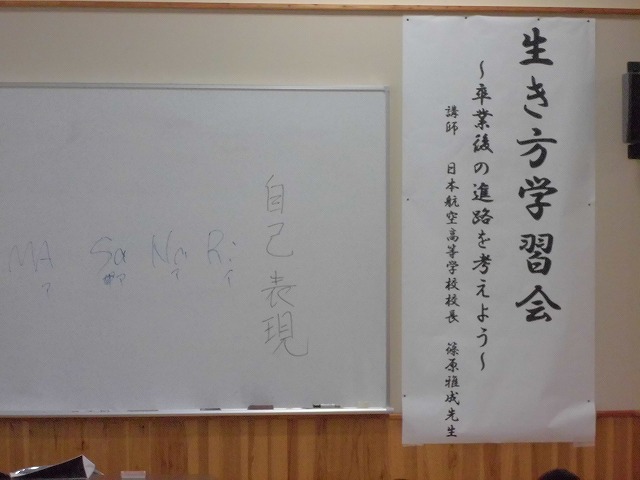 生き方学習会
～卒業後の進路を考えよう～
講師 日本航空高等学校校長 篠原雅成先生
自己表現
MA Sa Na Ri
ア ア ア イ